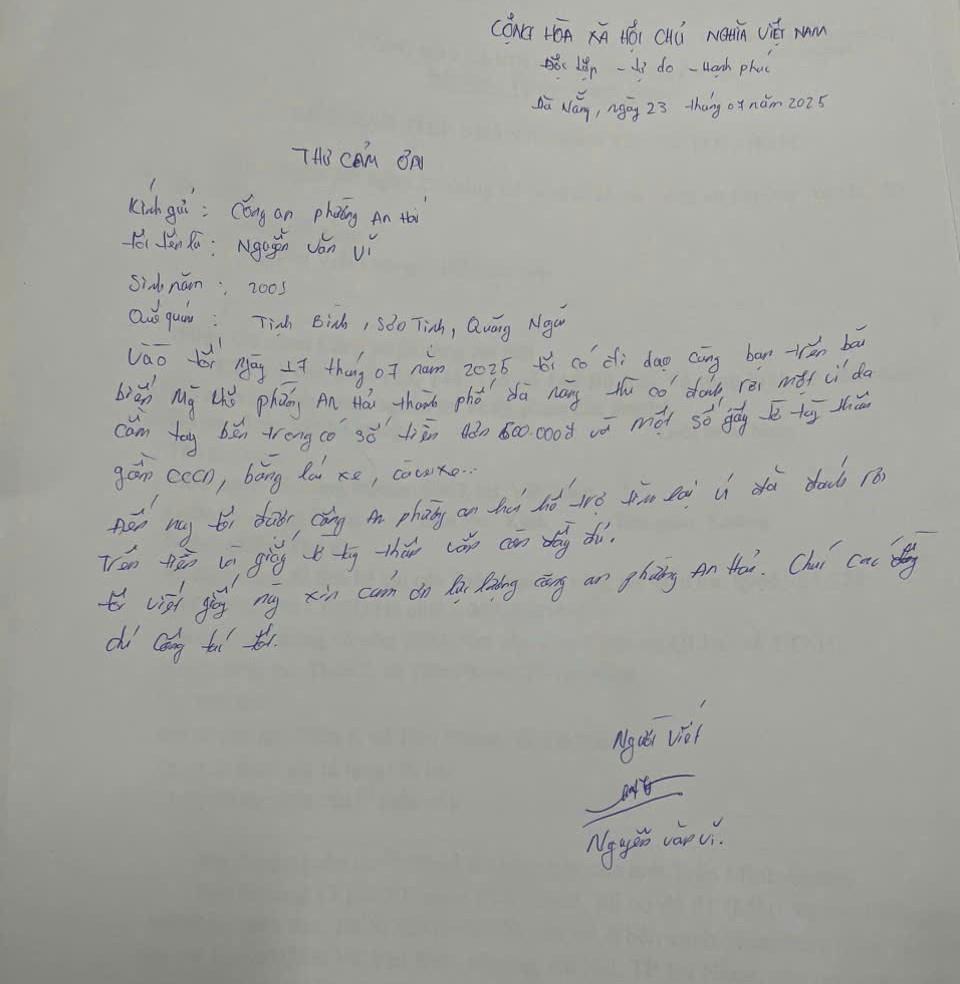 CỘNG HÒA XÃ HỘI CHỦ NGHĨA VIỆT NAM
Độc lập - tự do - Hạnh phúc
Đà Nẵng, ngày 23 tháng 07 năm 2025
THƯ CẢM ƠN
Kính gửi : Công an phường An Hải
tôi tên là : Nguyễn Văn Vĩ
Sinh năm :
Quê quán : Tịnh Bình, Sơn Tịnh, Quảng Ngãi
Vào tối ngày 17 tháng 07 năm 2025 tôi có đi dạo cùng bạn trên bãi
biển Mỹ Khê phường An Hải thành phố đà nẵng thì có đánh rơi một ví da
cầm tay bên trong có số tiền hơn 600.000đ và một số giấy tờ tùy thân
gồm CCCD, bằng lái xe, càvẹt xe...
Đến nay tôi được công An phường an hải hỗ trợ tìm lại ví đã đánh rơi
tiền và giấy tờ tùy thân vẫn còn đầy đủ.
tôi viết giấy này xin cám ơn lực lượng công an phường An Hải. Chúc các đồng
chí công tác tốt.
Người viết
Nguyễn văn vĩ.